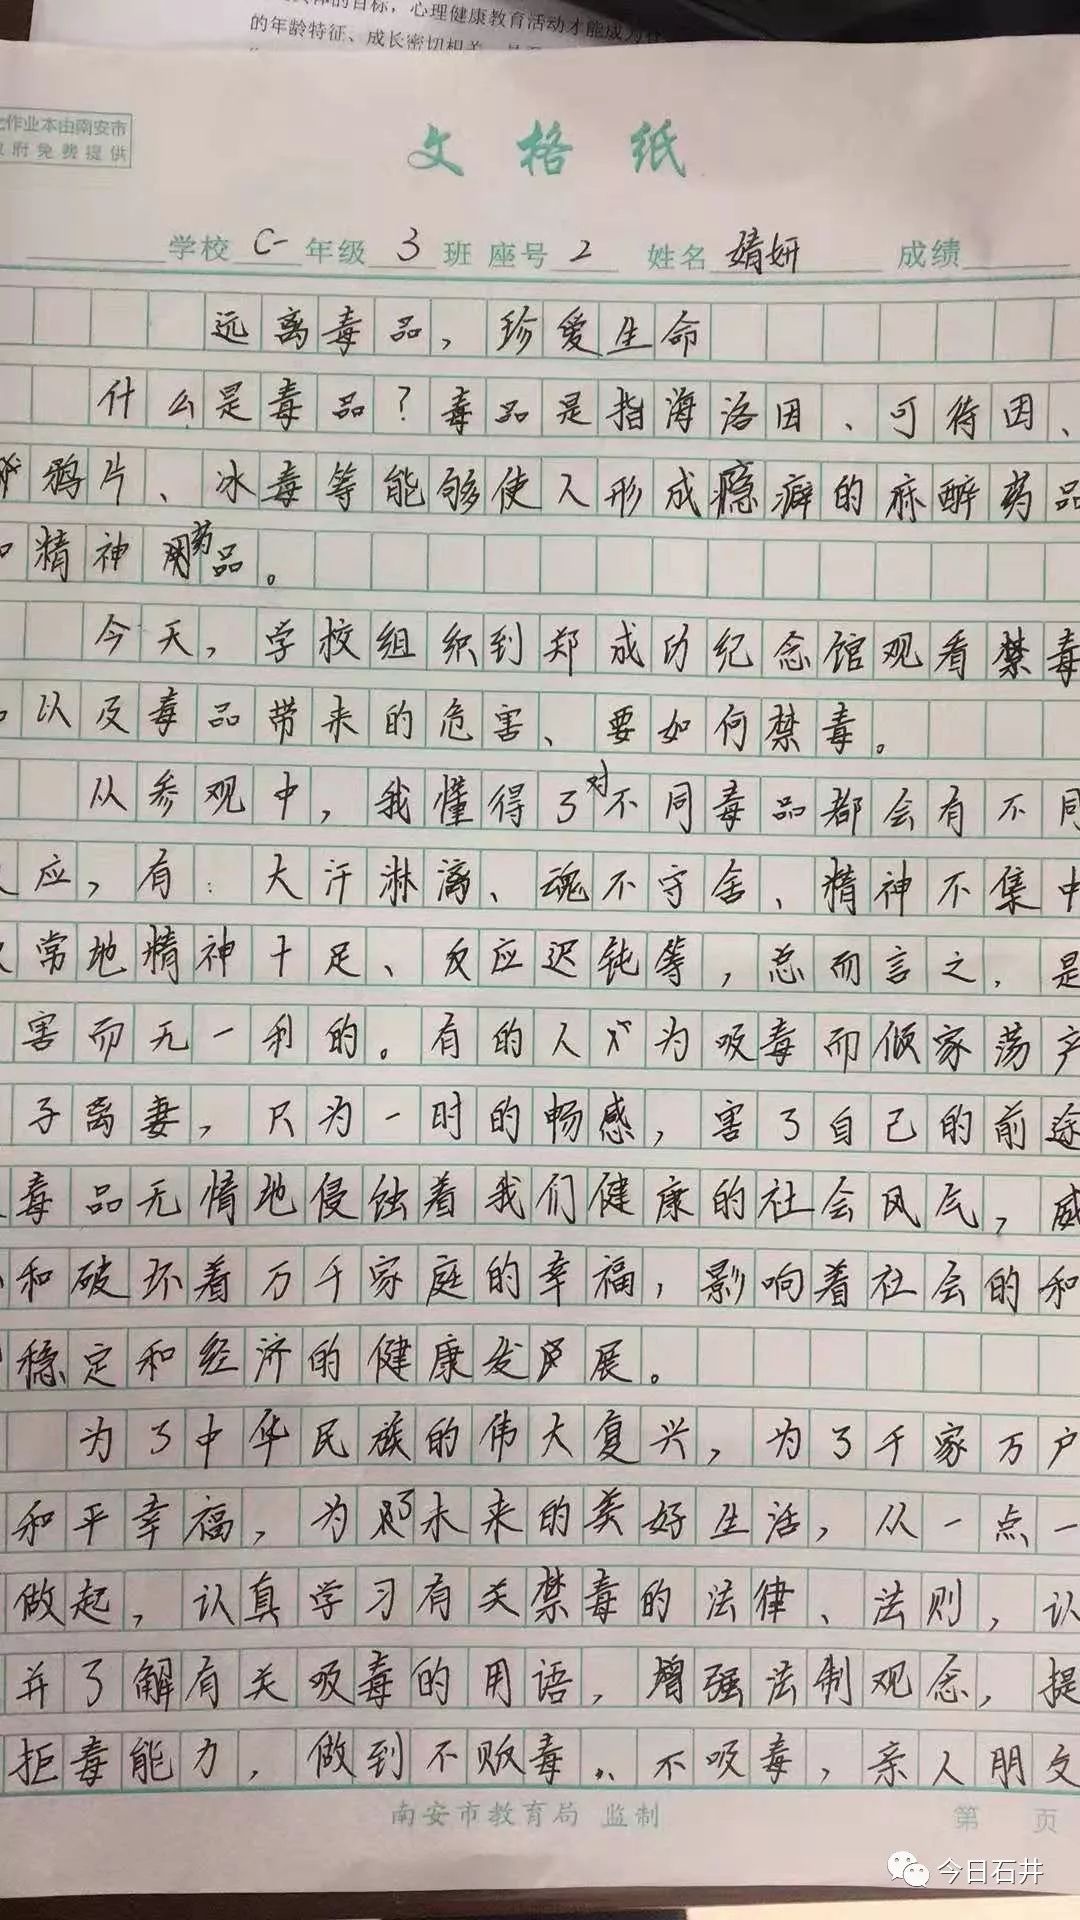 的目标，心理健康教育活动才能成为
的年龄特征、成长密切相关
作业本由南安市
府免费提供
文格纸
学校 C一 年级 3 班 座号 2 姓名 婧妍 成绩
远离毒品，珍爱生命
什么是毒品？毒品是指海洛因、可待因、
鸦片、冰毒等能够使人形成瘾癖的麻醉药品
和精神药品。
今天，学校组织到郑成功纪念馆观看禁毒
以及毒品带来的危害、要如何禁毒。
从参观中，我懂得了对不同毒品都会有不同
应，有：大汗淋漓、魂不守舍、精神不集中
常地精神十足、反应迟钝等，总而言之，是
害而无一利的。有的人为吸毒而倾家荡产
子离妻，只为一时的畅感，害了自己的前途
毒品无情地侵蚀着我们健康的社会风气，威
和破坏着万千家庭的幸福，影响着社会的和
稳定和经济的健康发展。
为了中华民族的伟大复兴，为了千家万户
和平幸福，为了未来的美好生活，从一点一
做起，认真学习有关禁毒的法律、法则，认
并了解有关吸毒的用语，增强法制观念，提
拒毒能力，做到不贩毒、不吸毒，亲人朋友
南安市教育局 监制
第 页
今日石井